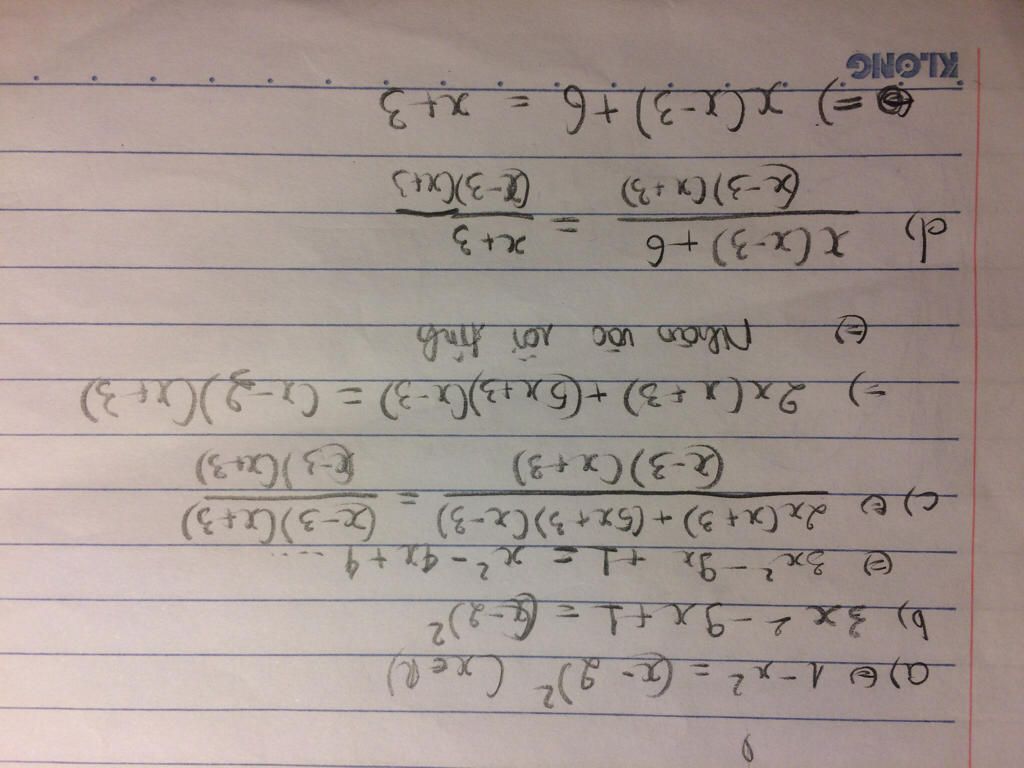 a) ⇔ 1-x² = (x-2)² (x∈R)
b) 3x²-9x+1 = (x-2)²
⇔ 3x²-9x+1 = x²-4x+4 ...
c) ⇔ \frac{2x(x+3)+(5x+3)(x-3)}{(x-3)(x+3)} = \frac{(x-3)(x+3)}{(x-3)(x+3)}
⇒ 2x(x+3)+(5x+3)(x-3) = (x-3)(x+3)
⇔ Nhân vào rồi tính
d) \frac{x(x-3)+6}{(x-3)(x+3)} = \frac{x+3}{(x-3)(x+3)}
⇒ x(x-3)+6 = x+3
KLONG